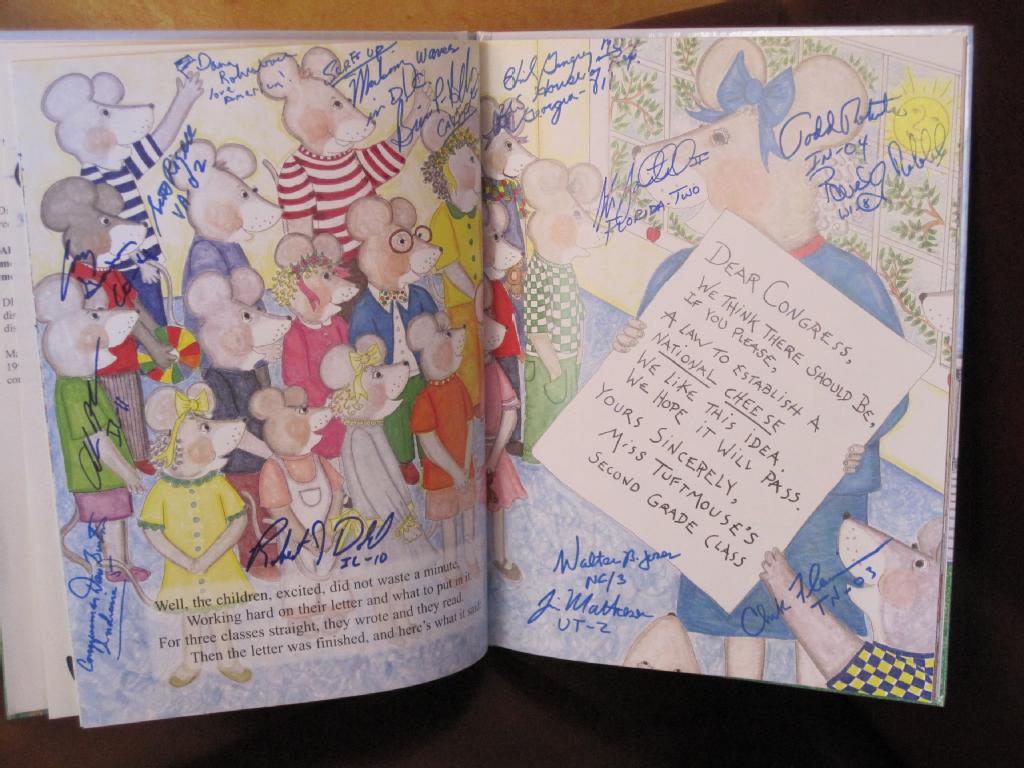 Dana
Rohrabacher
love
America!
SURF'S UP.
Makin waves
in DC
CA
Phil Gingrey MD
US House
Georgia-11
Todd Rokita
IN-04
WI-8
FLORIDA-TWO
Scott Rigell
VA 2
IL-11
Robert J. Dold
IL-10
Congressman Dan Burton
Indiana
Walter B. Jones
NC/3
Jim Matheson
UT-2
Chuck Fleischmann
TN-03
DEAR CONGRESS,
WE THINK THERE SHOULD BE,
IF YOU PLEASE,
A LAW TO ESTABLISH A
NATIONAL CHEESE
WE LIKE THIS IDEA.
WE HOPE IT WILL PASS.
YOURS SINCERELY,
MISS TUFTMOUSE'S
SECOND GRADE CLASS
Well, the children, excited, did not waste a minute,
Working hard on their letter and what to put in it.
For three classes straight, they wrote and they read.
Then the letter was finished, and here's what it said: